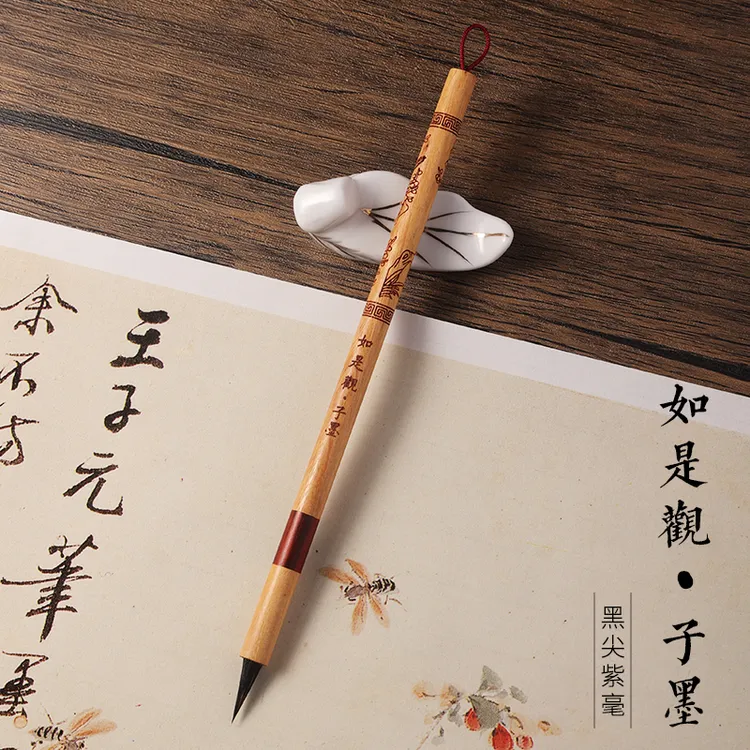 如是觀·子墨
如是觀·子墨
黑尖紫毫
王子元筆
余不方
墨